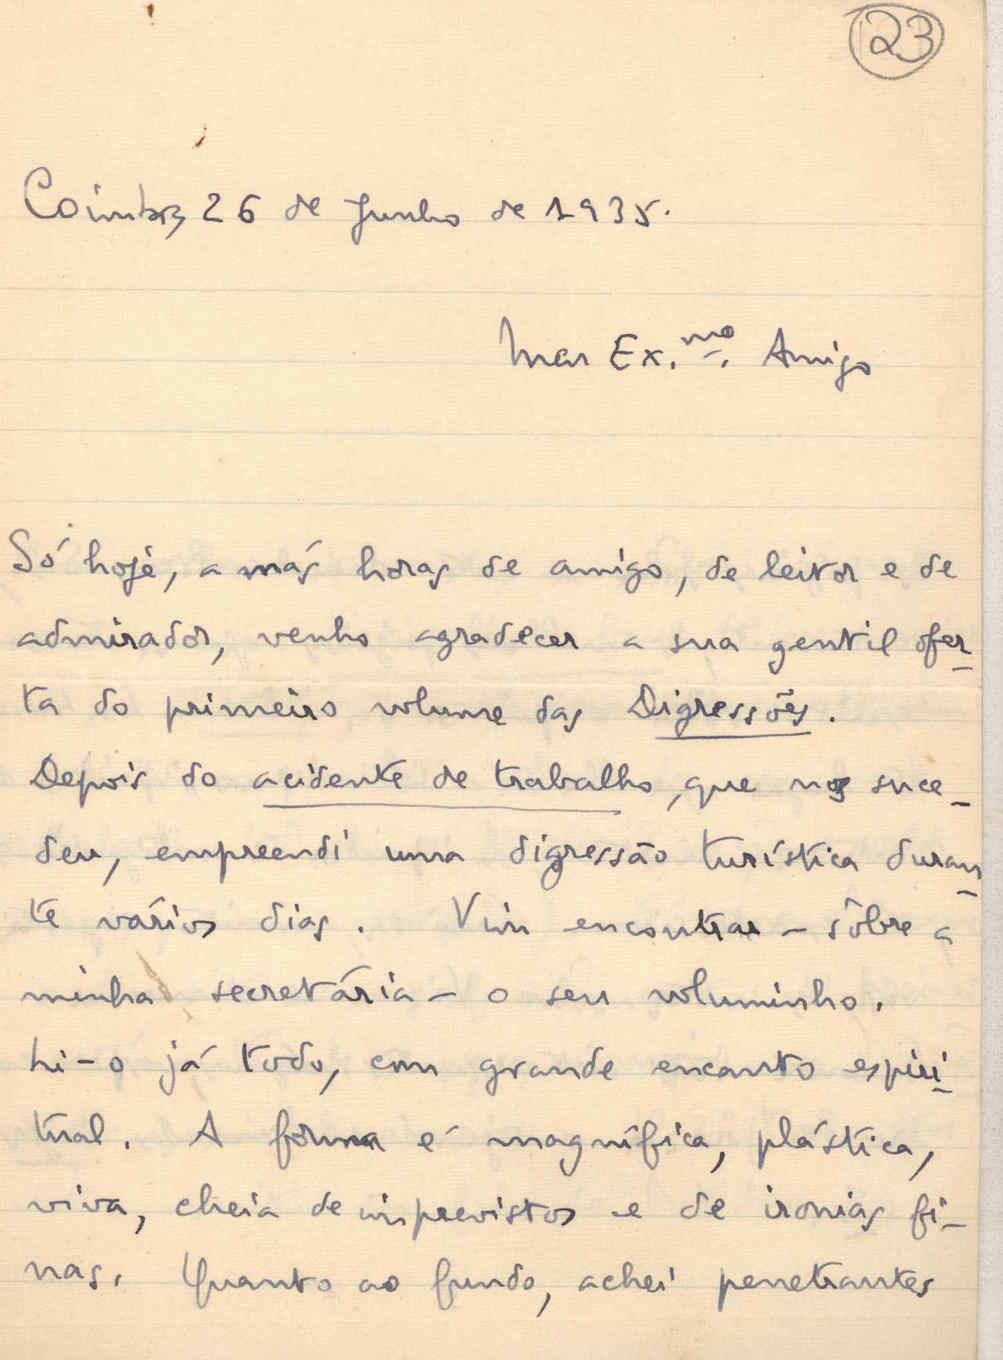 23
Coimbra, 26 de Junho de 1935.
Meu Ex.mo. Amigo
Só hoje, a más horas de amigo, de leitor e de
admirador, venho agradecer a sua gentil ofer-
ta do primeiro volume das Digressões.
Depois do acidente de trabalho, que nos suce-
deu, empreendi uma digressão turística duran-
te vários dias. Vim encontrar - sôbre a
minha secretária - o seu voluminho.
Li-o já todo, com grande encanto espiri-
tual. A forma é magnífica, plástica,
viva, cheia de imprevistos e de ironias fi-
nas. Quanto ao fundo, achei penetrantes